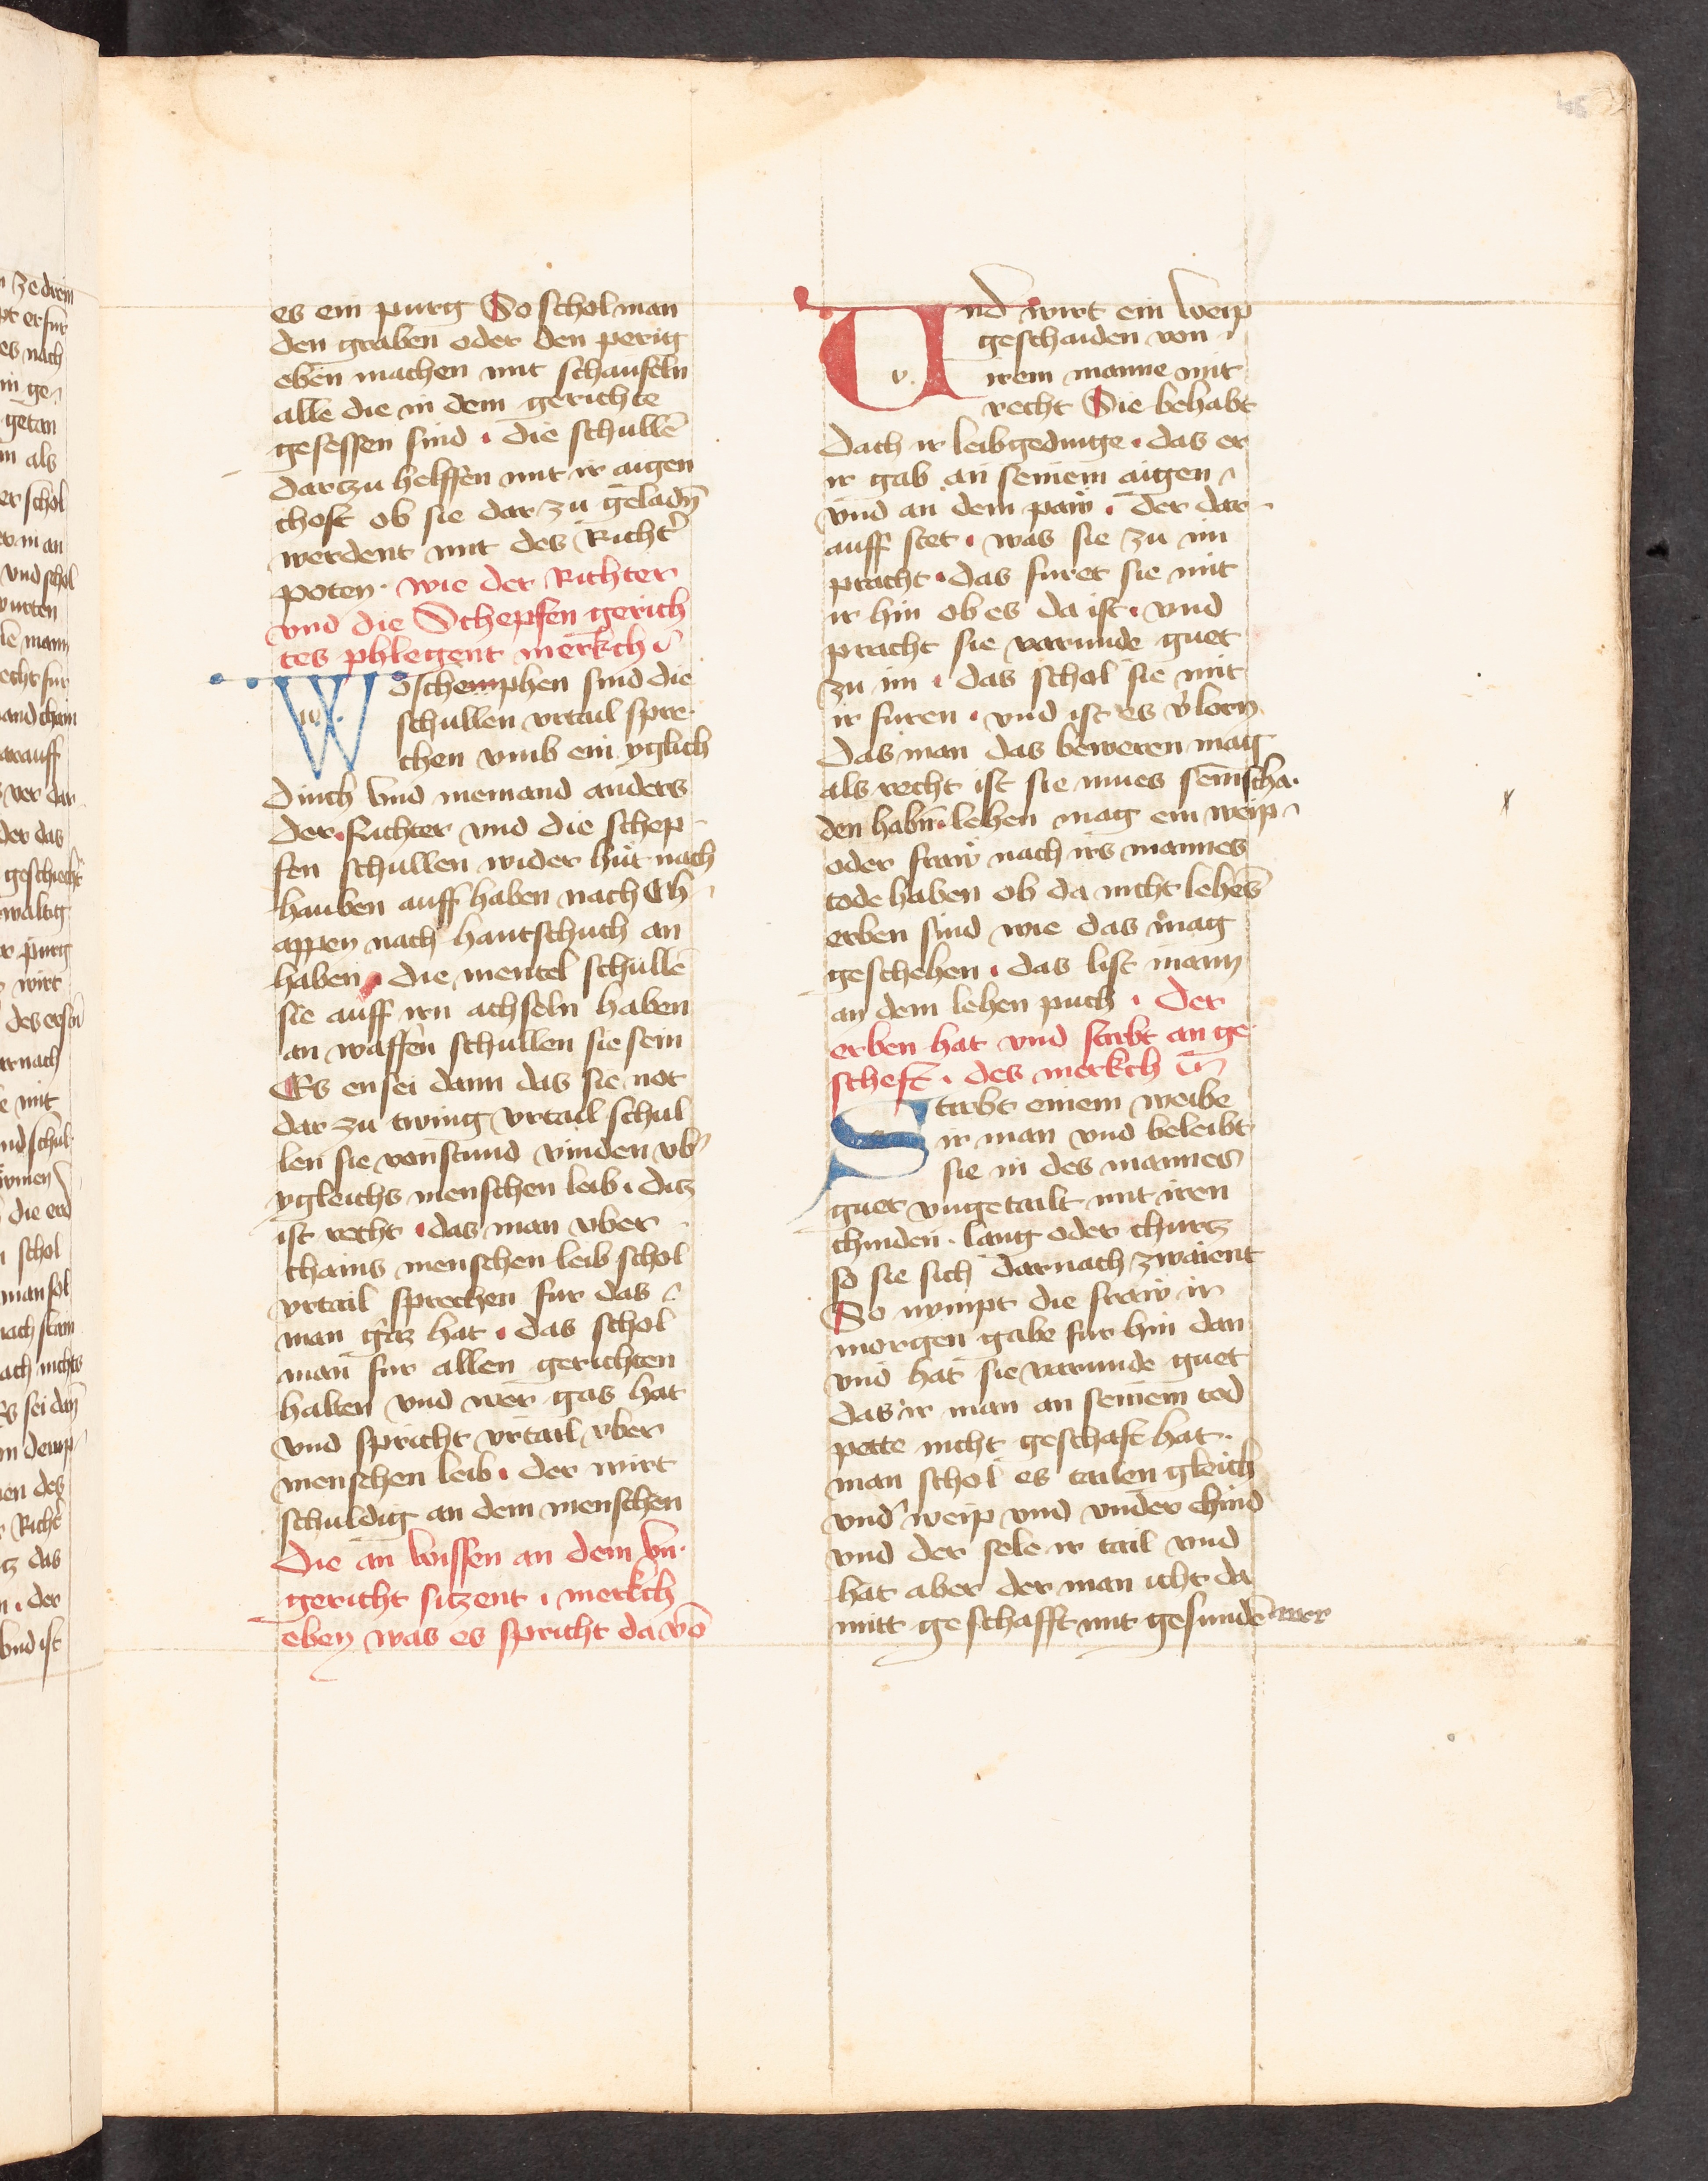 es ein purg So schol man
den graben oder den perig
eben machen mit schaufeln
alle die in dem gerichte
gesessen sind · die schullē
dartzu helffen mit ir aigen
chost ob sie dar zu geladn̄
werdent mit des Richt̓
poten · wie der Richter
vnd die Schepfen gerich
tes phlegent merkch
Wo schemphen sind die
schullen vrtail spre·
chen vmb ein yglich
Dinch vnd niemand anders
der Richter vnd die schep
fen schullen wider hut nach
hauben auff haben nach Ch
appen nach hantschuch an
haben · die mentel schullē
sie auff irn achseln haben
an waffen schullen sie sein
Es ensei dann das sie not
dar zu twing vrtail schul
len sie vonstund vinden vb̓
ygleichs menschen leib · ditz
ist recht · das man vber
chains menschen leib schol
vrtail sprechen fur das
man gaz hat · das schol
man fur allen gerichten
halten vnd wer gas hat
vnd spricht vrtail vber
menschen leib · der wirt
schuldig an dem menschen
Die an wissen an dem vn·
gericht sitzent · merkch
eben was es spricht da vō
45
Und wirt ein weip
geschaiden von
v.
irem manne mit
recht Sie behabt
dach ir leibgedinge · das er
ir gab an seinem aigen
vnd an dem paw · Der dar
auff stet · was sie zu im
pracht · das furet sie mit
ir hin ob es da ist · vnd
pracht sie varunde guet
zu im · das schol sie mit
ir furen · vnd ist es v̓lorn
das man das beweren mag
als recht ist sie mues sein scha·
den habn̄ · lehen mag ein weip
oder fraw nach irs mannes
tode haben ob da nicht lehēs
erben sind wie das mag
geschehen · das list mann
an dem lehen puch · Der
erben hat vnd stirbt an ge
scheft · des merkch
Stirbt einem weibe
ir man vnd beleibt
sie in des mannes
guet vngetailt mit iren
chinden · lang oder churtz
so sie sich darnach zwaient
So nympt die fraw ir
morgen gabe fur hin dan
vnd hat sie varunde guet
das ir man an seinem tod
pette nicht geschaft hat ·
man schol es tailen gleich
vnd̓ weip vnd vnder chind
vnd der sele ir tail vnd
hat aber der man icht da
mitt geschafft mit gesundē